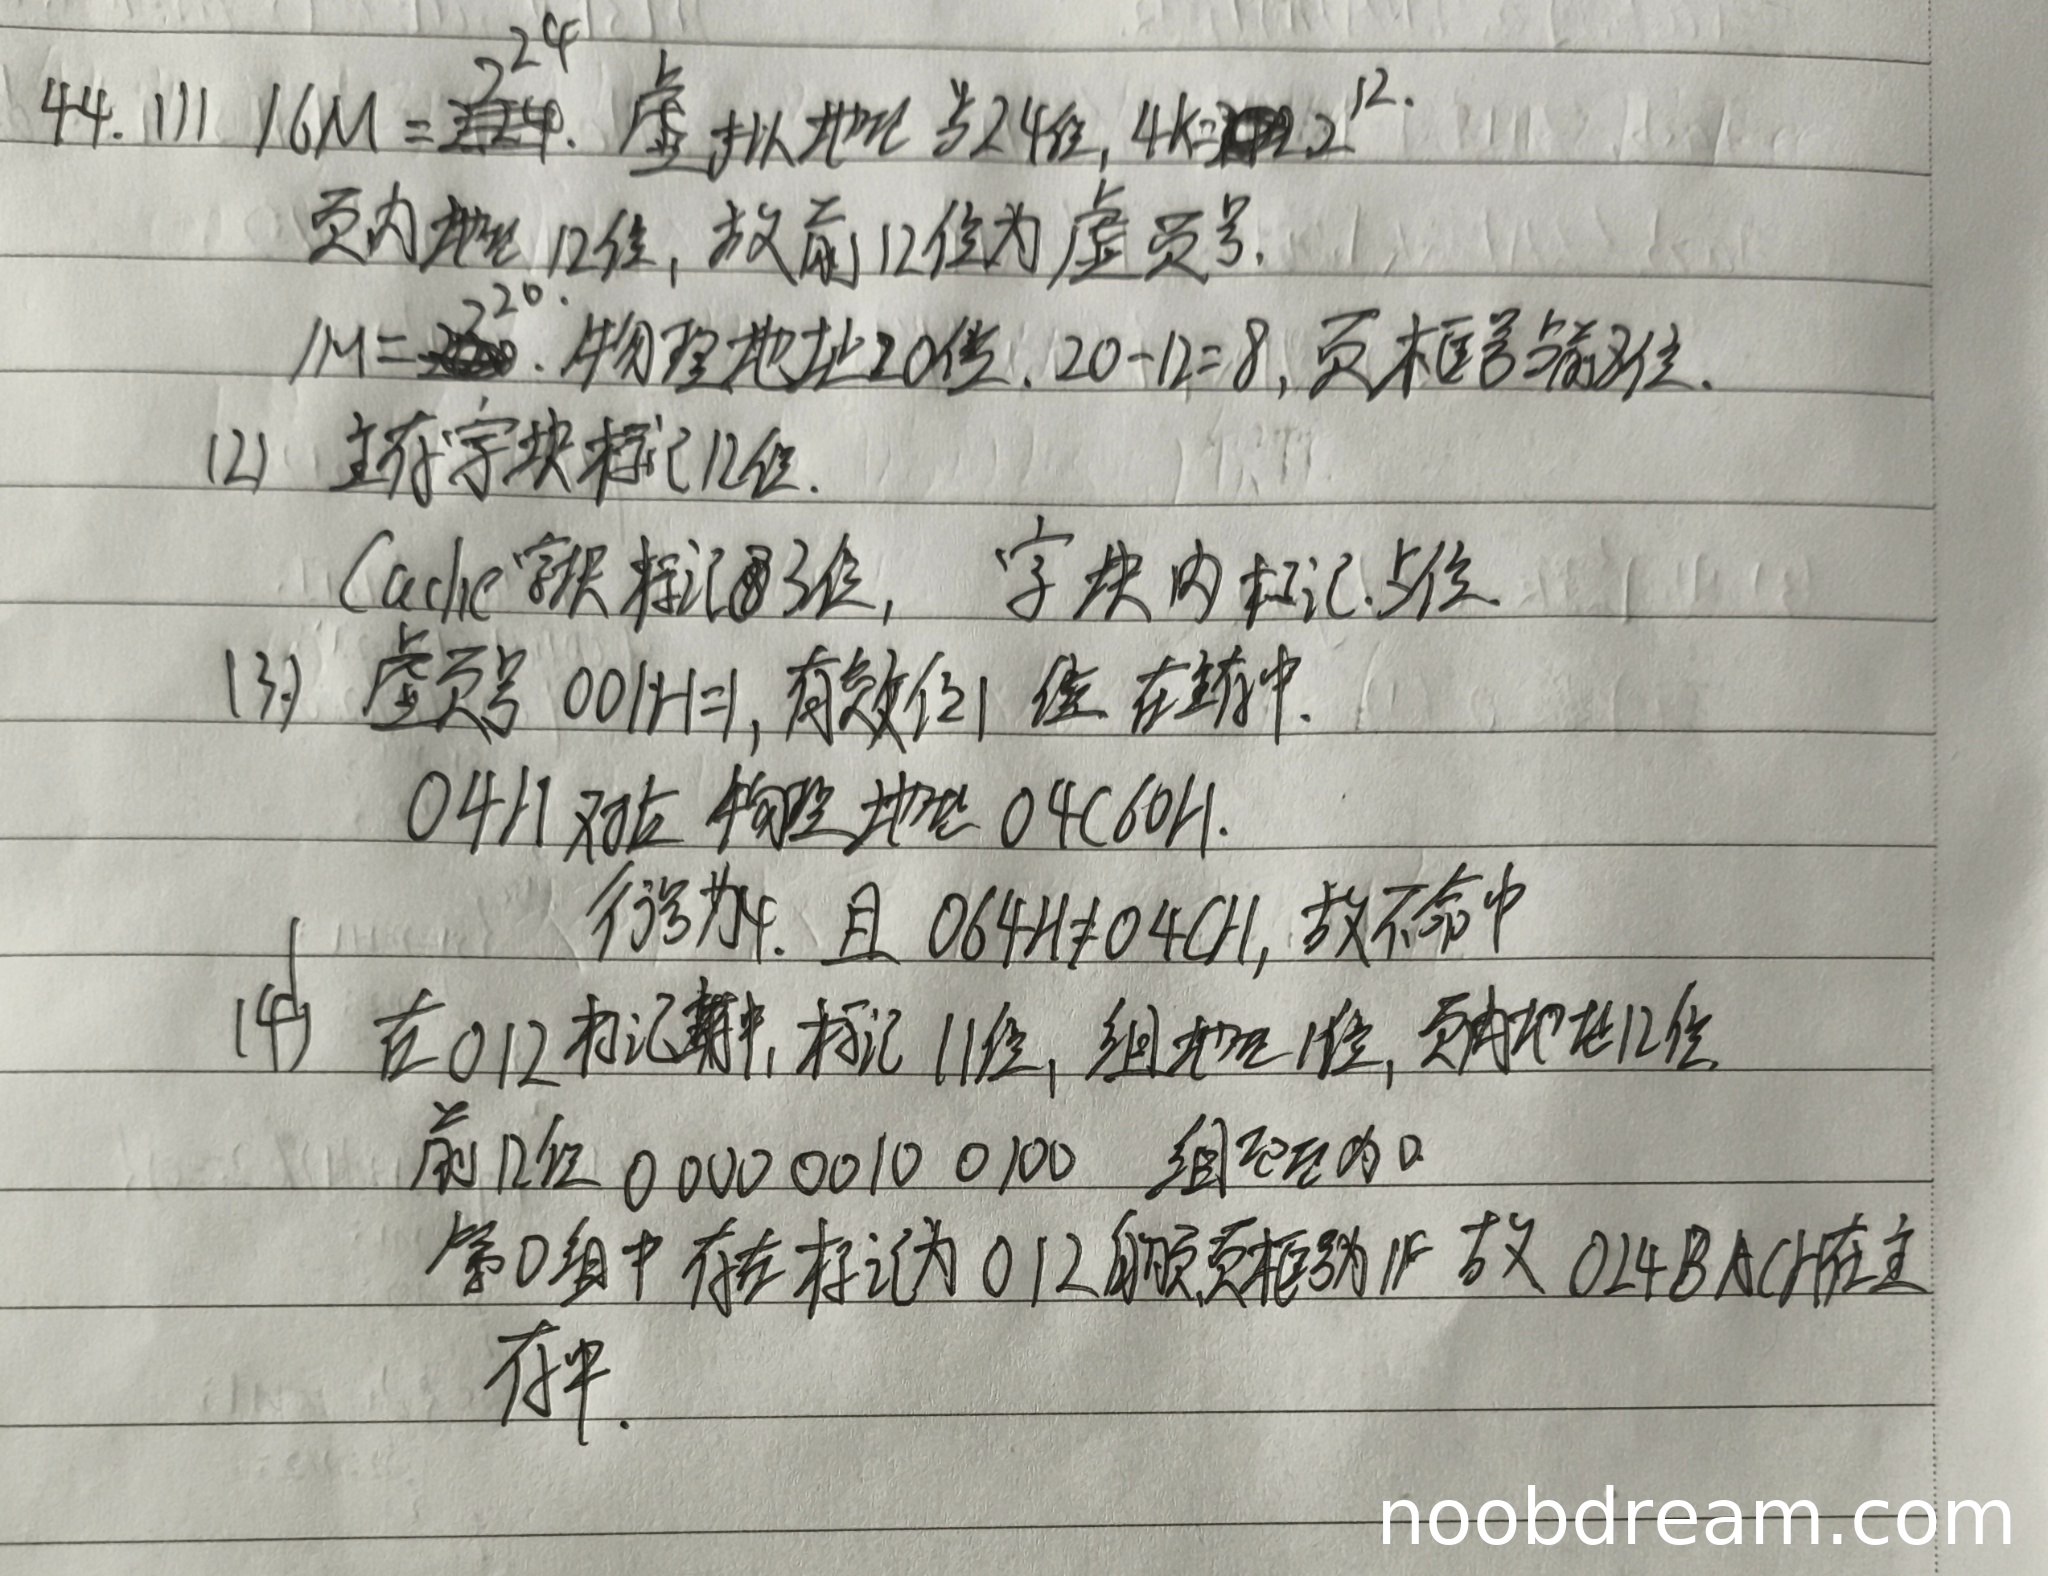 44. (1) 16M = 2^24. 虚拟地址占24位, 4K=2^12.
页内地址12位, 故前12位为虚页号.
1M = 2^20. 物理地址20位. 20-12=8, 页框号占前8位.
(2) 主存字块标记12位.
Cache字块标记3位, 字块内标记.5位.
(3) 虚页号 001H=1, 有效位1 在主存中.
04H 对应 物理地址 04C60H.
行号为4. 且 064H≠04CH, 故不命中
(4) 在012标记中, 标记11位, 组地址1位, 页内地址12位
前12位 0000 0010 0100 组地址为0.
第0组中存在标记为012的页页框号为1F 故 024BACH在主
存中.
noobdream.com